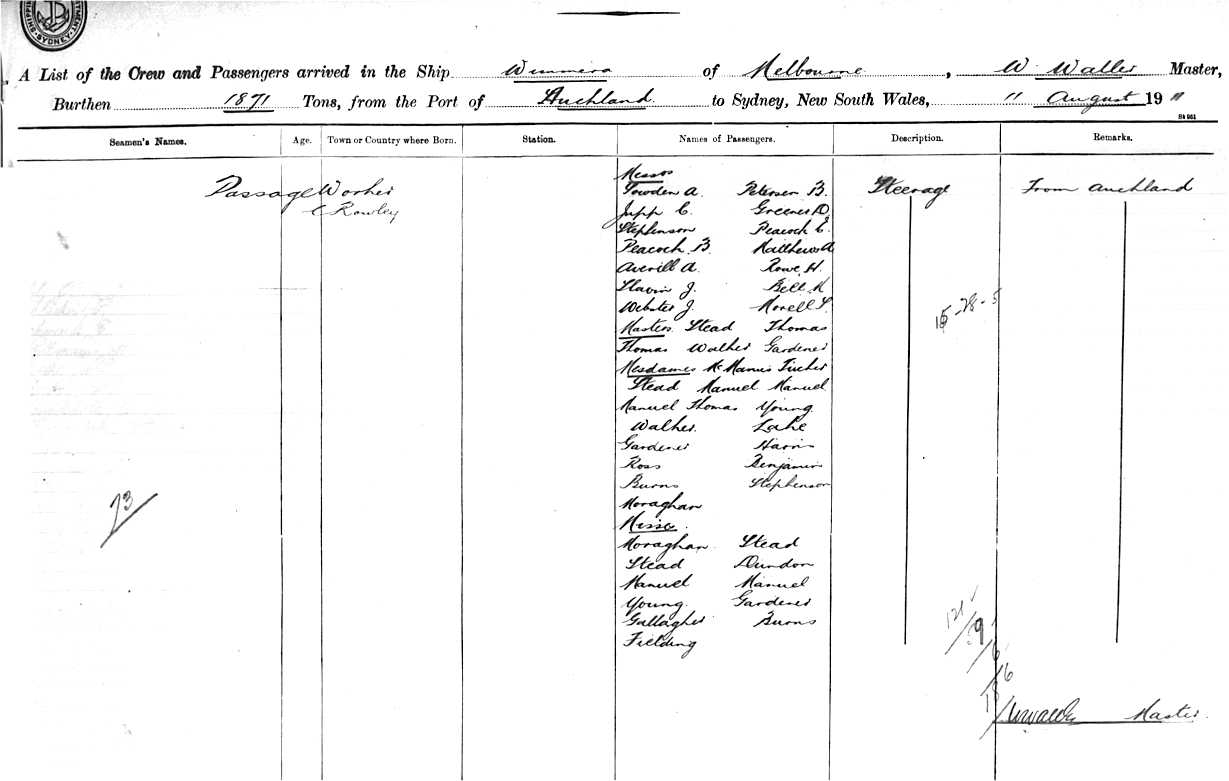 SHIPPING
SYDNEY
A List of the Crew and Passengers arrived in the Ship Wimmera of Melbourne, W. Waller Master,
Burthen 1871 Tons, from the Port of Auckland to Sydney, New South Wales, 11 August 1911
Seamen's Names. Age. Town or Country where Born. Station. Names of Passengers. Description. Remarks.
Messrs
Passage Worker Towden A. Petersen B. Steerage From Auckland
C Rowley Jupp C. Greener D
Stephenson Peacock C.
Peacock B. Matthews A
Averill A. Rowe H.
Slavin J. Bell K
Webster J. Morell S.
Masters Stead Thomas
Thomas Walker Gardener
Mesdames McManus Tucker
Stead Manuel Manuel
Manuel Thomas Young
Walker. Lake
Gardener Harris
Ross Benjamin
Burns Stephenson
Moraghan
Misses
Moraghan Stead
Stead Dundon
Manuel Manuel
Young. Gardener
Gallagher Burns
Fielding
15-28-5
73
121
Master.